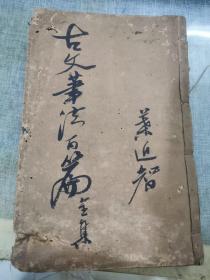 古文筆法百篇全集
葉近智